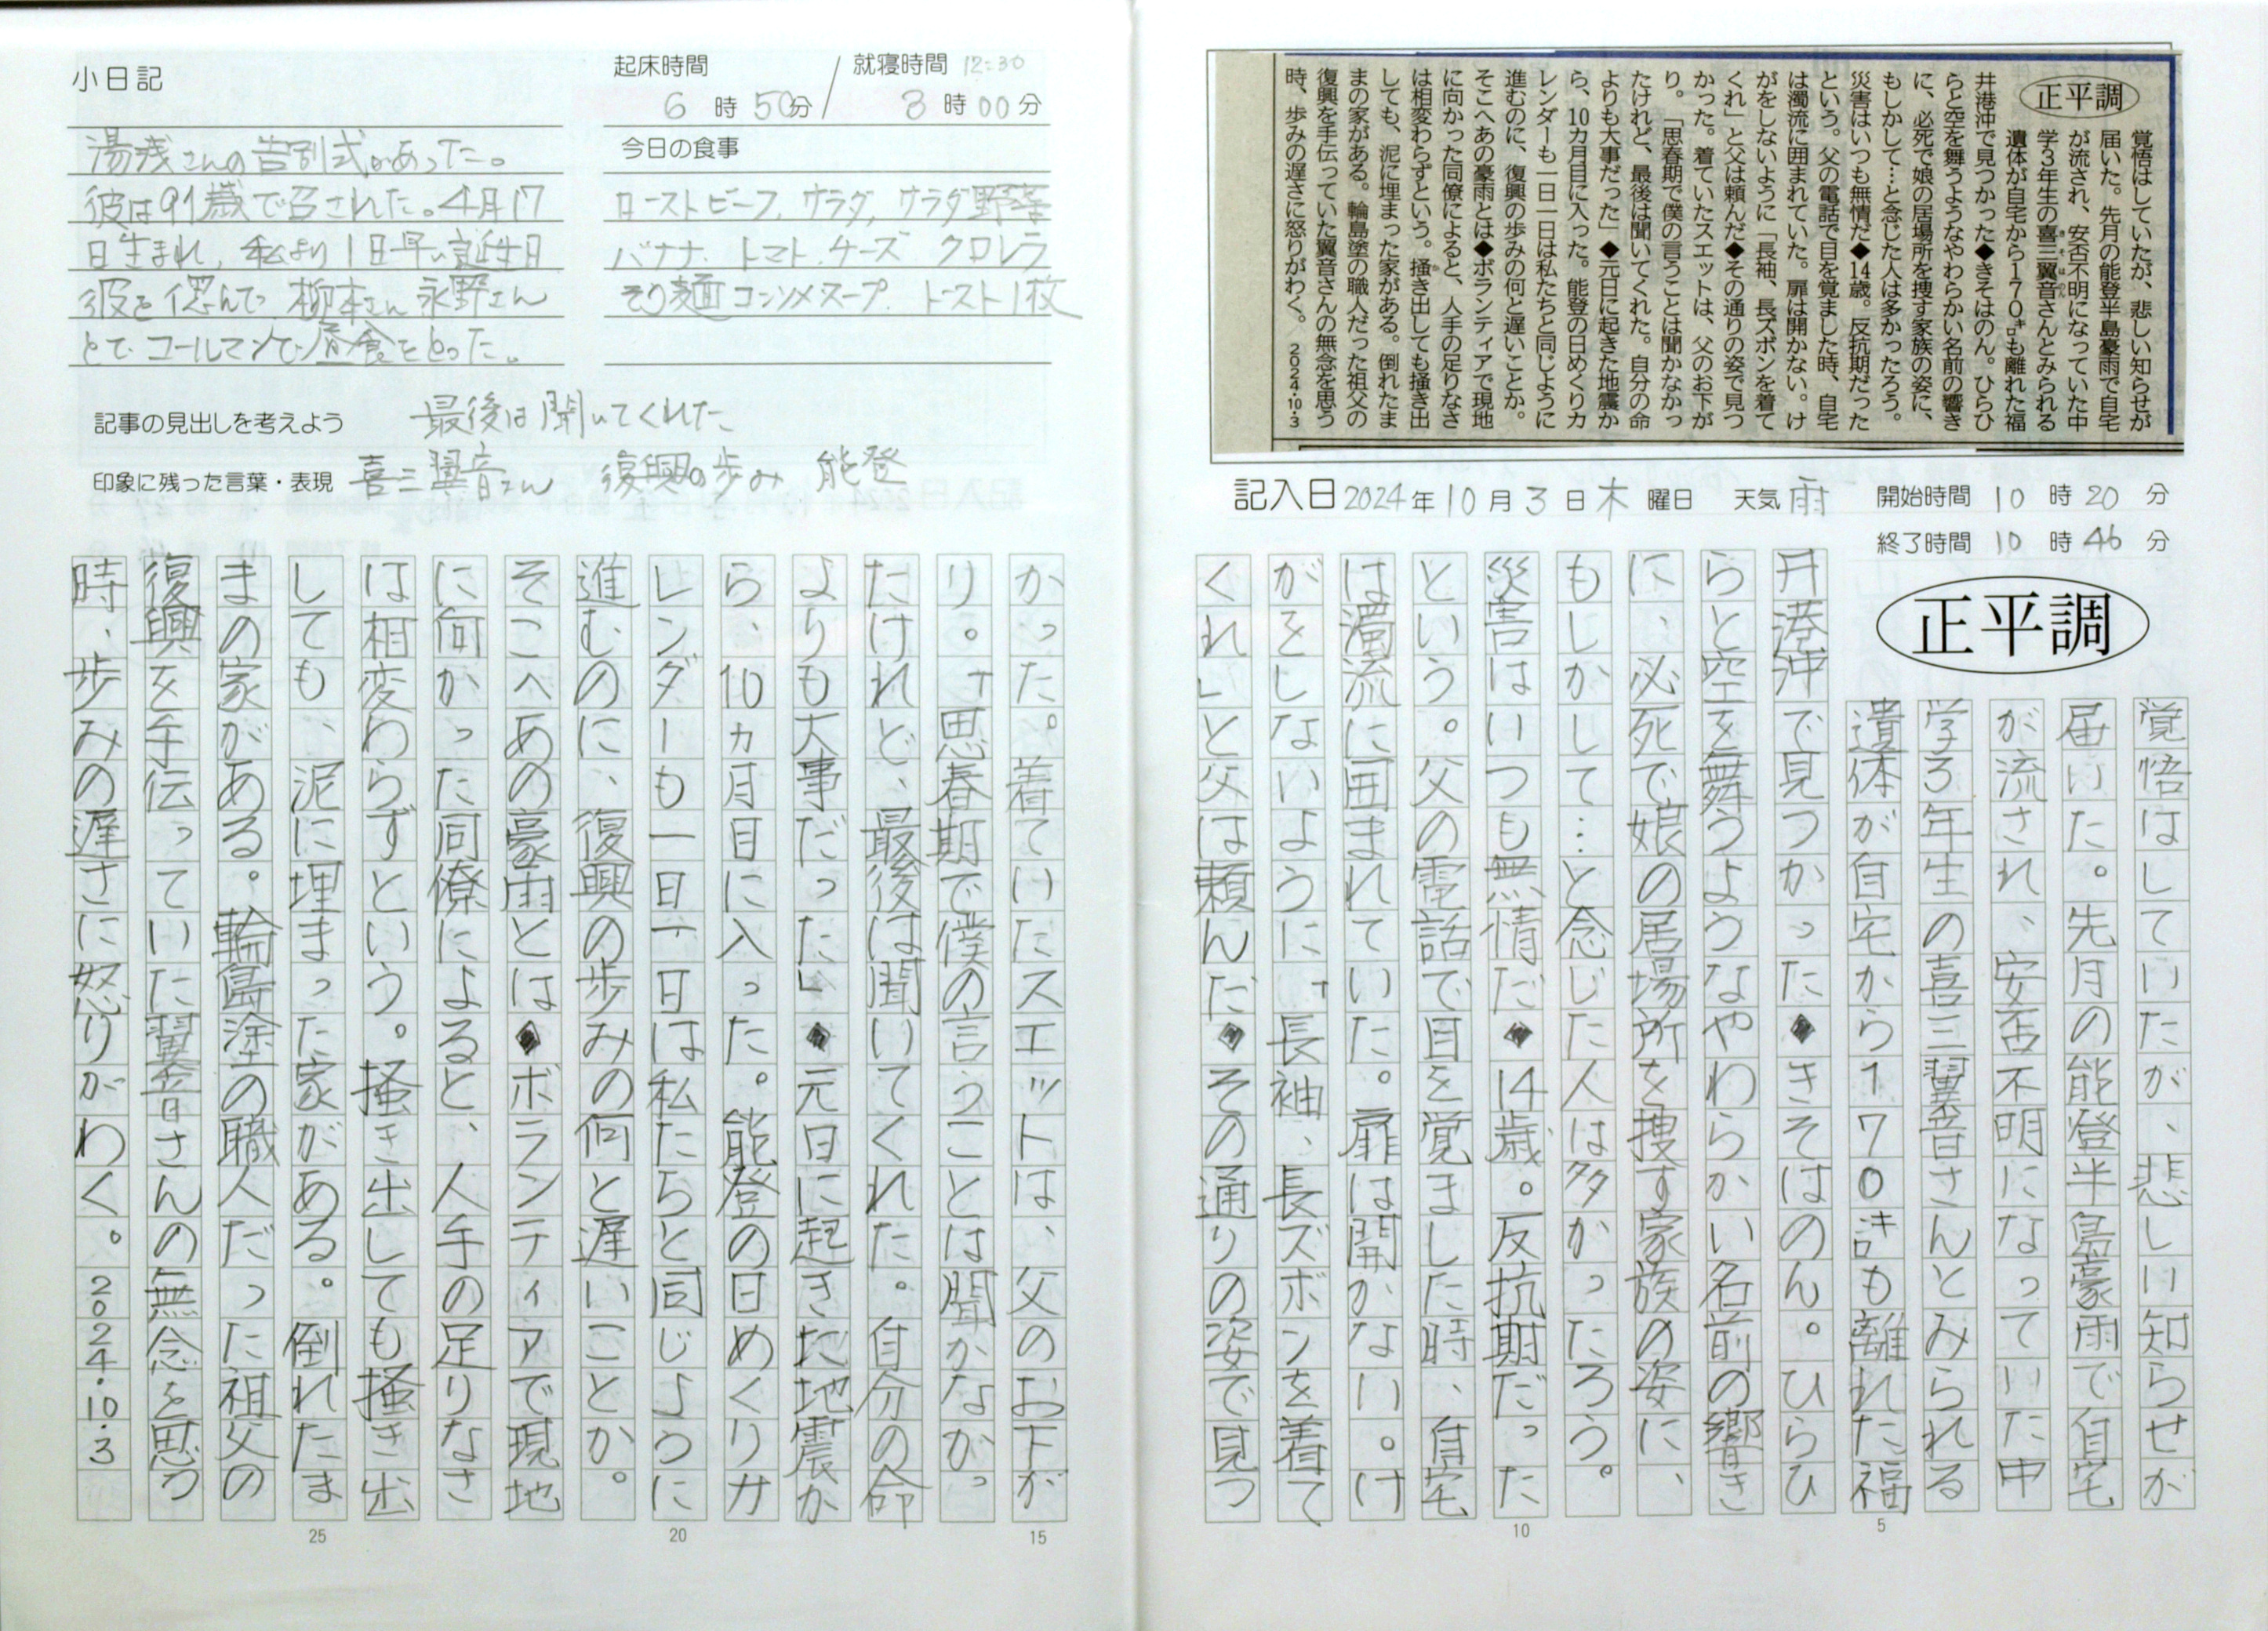 正平調
覚悟はしていたが、悲しい知らせが
届いた。先月の能登半島豪雨で自宅
が流され、安否不明になっていた中
学3年生の喜三翼音さんとみられる
遺体が自宅から170㌔も離れた福
井港沖で見つかった◆きそはのん。ひらひ
らと空を舞うようなやわらかい名前の響き
に、必死で娘の居場所を捜す家族の姿に、
もしかして…と念じた人は多かったろう。
災害はいつも無情だ◆14歳。反抗期だった
という。父の電話で目を覚ました時、自宅
は濁流に囲まれていた。扉は開かない。け
がをしないように「長袖、長ズボンを着て
くれ」と父は頼んだ◆その通りの姿で見つ
かった。着ていたスエットは、父のお下が
り。「思春期で僕の言うことは聞かなかっ
たけれど、最後は聞いてくれた。自分の命
よりも大事だった」◆元日に起きた地震か
ら、10カ月目に入った。能登の日めくりカ
レンダーも一日一日は私たちと同じように
進むのに、復興の歩みの何と遅いことか。
そこへあの豪雨とは◆ボランティアで現地
に向かった同僚によると、人手の足りなさ
は相変わらずという。掻き出しても掻き出
しても、泥に埋まった家がある。倒れたま
まの家がある。輪島塗の職人だった祖父の
復興を手伝っていた翼音さんの無念を思う
時、歩みの遅さに怒りがわく。 2024・10・3
記入日 2024年10月3日木曜日 天気 雨 開始時間 10時20分
終了時間 10時46分
正平調
覚悟はしていたが、悲しい知らせが
届いた。先月の能登半島豪雨で自宅
が流され、安否不明になっていた中
学3年生の喜三翼音さんとみられる
遺体が自宅から170㌔も離れた福
井港沖で見つかった◆きそはのん。ひらひ
らと空を舞うようなやわらかい名前の響き
に、必死で娘の居場所を捜す家族の姿に、
もしかして…と念じた人は多かったろう。
災害はいつも無情だ◆14歳。反抗期だった
という。父の電話で目を覚ました時、自宅
は濁流に囲まれていた。扉は開かない。け
がをしないように「長袖、長ズボンを着て
くれ」と父は頼んだ◆その通りの姿で見つ
5
10
小日記
湯浅さんの告別式があった。
彼は91歳で召された。4月17
日生まれ、私より1日早い誕生日
彼を偲んで 柳本さん 永野さん
とで コールマンで昼食をとった。
起床時間 6時50分/就寝時間 12:30
8時00分
今日の食事
ローストビーフ、サラダ、サラダ野菜
バナナ、トマト、チーズ クロレラ
そうめん コンソメスープ、トースト1枚
記事の見出しを考えよう 最後は聞いてくれた
印象に残った言葉・表現 喜三翼音さん 復興の歩み 能登
かった。着ていたスエットは、父のお下が
り。「思春期で僕の言うことは聞かなかっ
たけれど、最後は聞いてくれた。自分の命
よりも大事だった」◆元日に起きた地震か
ら、10カ月目に入った。能登の日めくりカ
レンダーも一日一日は私たちと同じように
進むのに、復興の歩みの何と遅いことか。
そこへあの豪雨とは◆ボランティアで現地
に向かった同僚によると、人手の足りなさ
は相変わらずという。掻き出しても掻き出
しても、泥に埋まった家がある。倒れたま
まの家がある。輪島塗の職人だった祖父の
復興を手伝っていた翼音さんの無念を思う
時、歩みの遅さに怒りがわく。2024・10・3
15
20
25